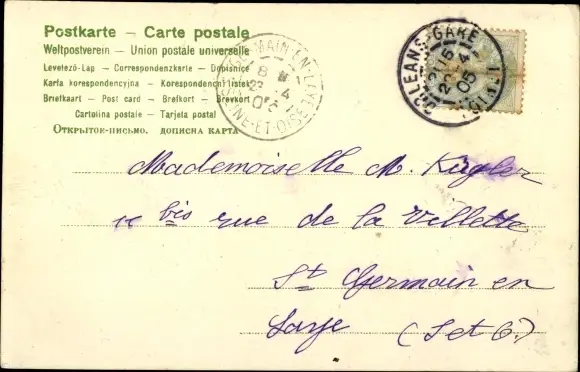 Postkarte – Carte postale
Weltpostverein – Union postale universelle
Levelező-Lap – Correspondenzkarte – Dopisnice
Karta korespondencyjna – Korespondenční lístek
Briefkaart – Post card – Brefkort – Brevkort
Cartolina postale – Tarjeta postal
Открытое письмо. дописна карта
GERMAIN-EN-LAYE
8
23 4
05
SEINE-ET-OISE
ORLEANS-GARE
21 15
22 4
05
LOIRET
Mademoiselle M. Kugler
11 bis rue de la Villette
St Germain en
Laye (S et O.)